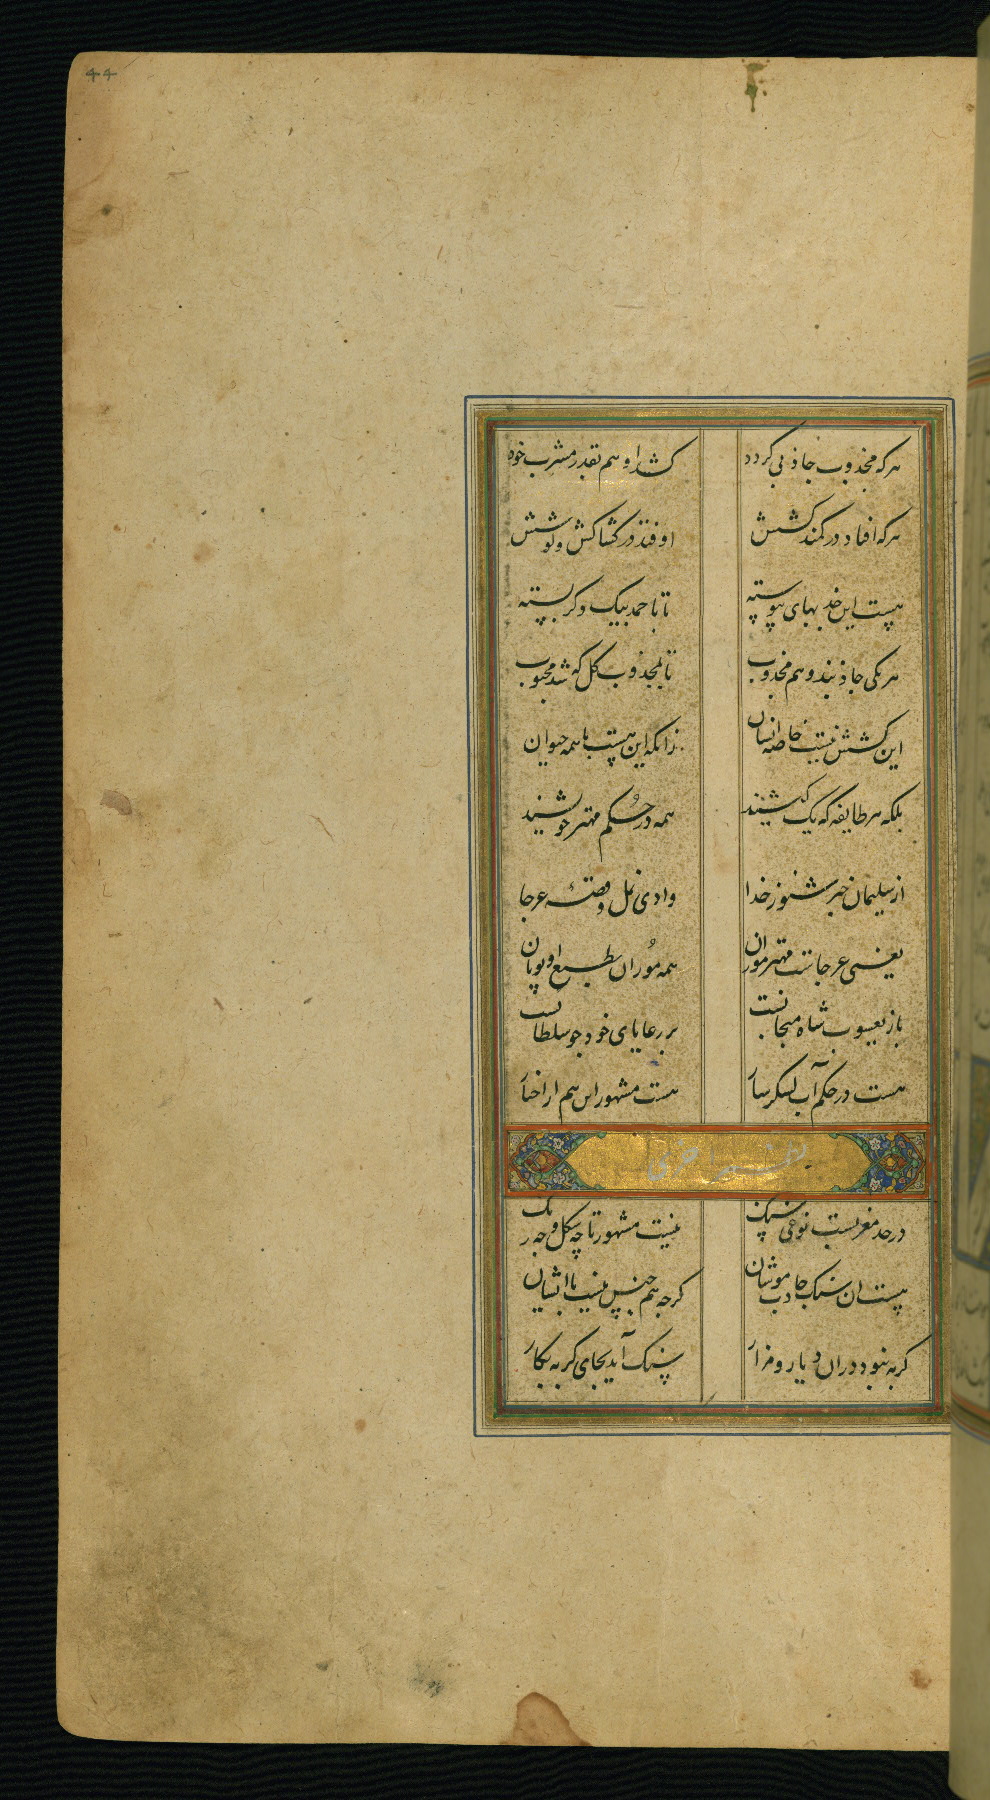 ۴۴
هرکه مجذوب جاذبی گردد کشد او هم بقدر مشرب خود
هرکه افتاد در کمند کشش او فتد در کشاکش و کوشش
هست این جذبهای پیوسته تا باحمد بیک دکر بسته
هر یکی جاذبند و هم مجذوب تا بمجذوب کل که شد محبوب
این کشش نیست خاصه انسان زانکه این هست با همه حیوان
بلکه هر طایفه که یک کیشند همه در حکم مهتر خویشند
از سلیمان خبر شنو ز خدا وادی نمل و قصه عرجا
یعنی عرجاست مهتر موران همه موران بطبع او پویان
باز یعسوب شاه منجانست بر رعایای خود چو سلطانست
هست در حکم آب لشکر سار هست مشهور این هم از اخبار
اخری
در حد مغربست نوعی سنک نیست مشهور تا چه شکل و چه رنک
هست آن سنک جاذب موشان کرچه هم جنس نیست با ایشان
کربه نبود در آن دیار و مزار سنک آید بجای کربه بکار